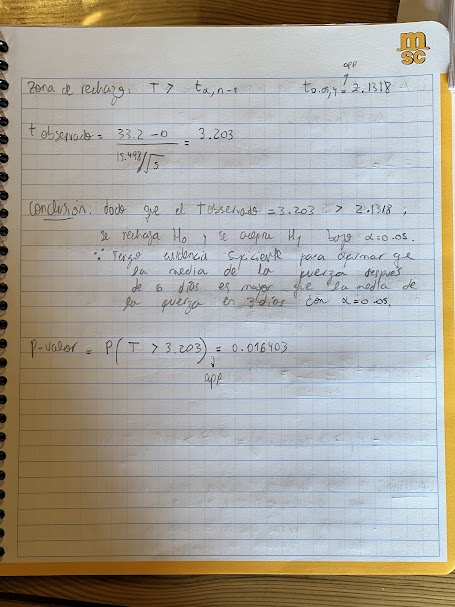 m
sc
app
Zona de rechazo: T > tα,n-1 t0.05,4 = 2.1318
t observado = 33.2 - 0 / 15.498/√5 = 3.203
Conclusión: dado que el t observado = 3.203 > 2.1318,
se rechaza H0 y se acepta H1 bajo α=0.05.
∵ Tengo evidencia suficiente para afirmar que
la media de la fuerza después
de 6 días es mayor que la media de
la fuerza en 3 días con α=0.05.
P-valor = P(T > 3.203) = 0.016403
app